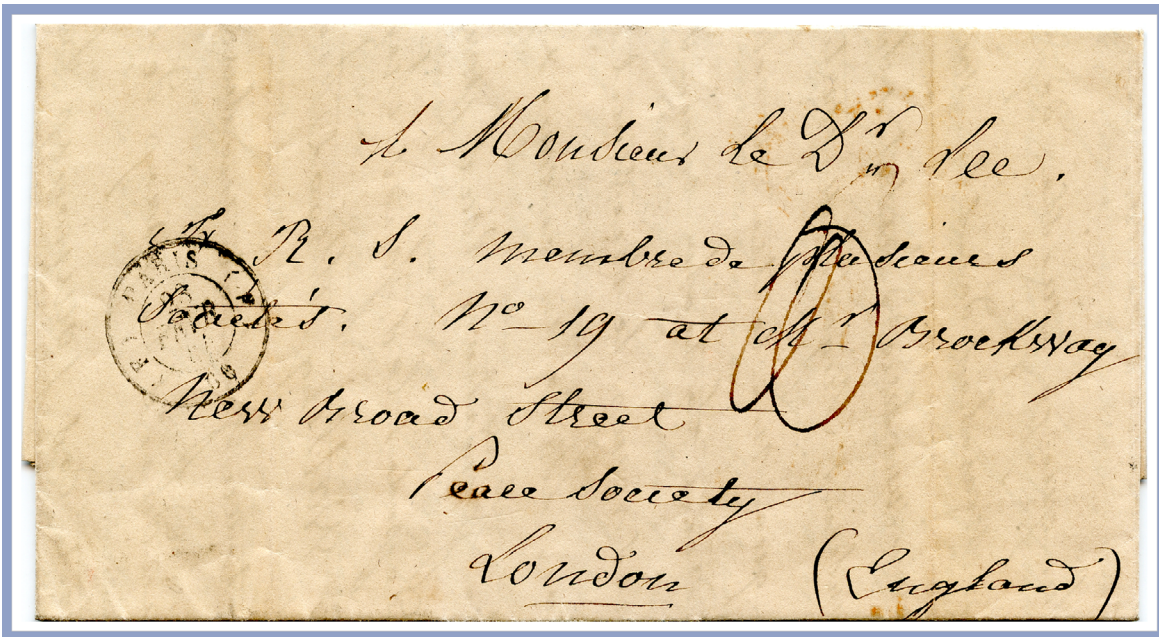 A Monsieur le Dr Lee.
F. R. S. membre de plusieurs
Societés. No 19 at Mr Brockway
New Broad Street
Peace Society
London (England)
PARIS